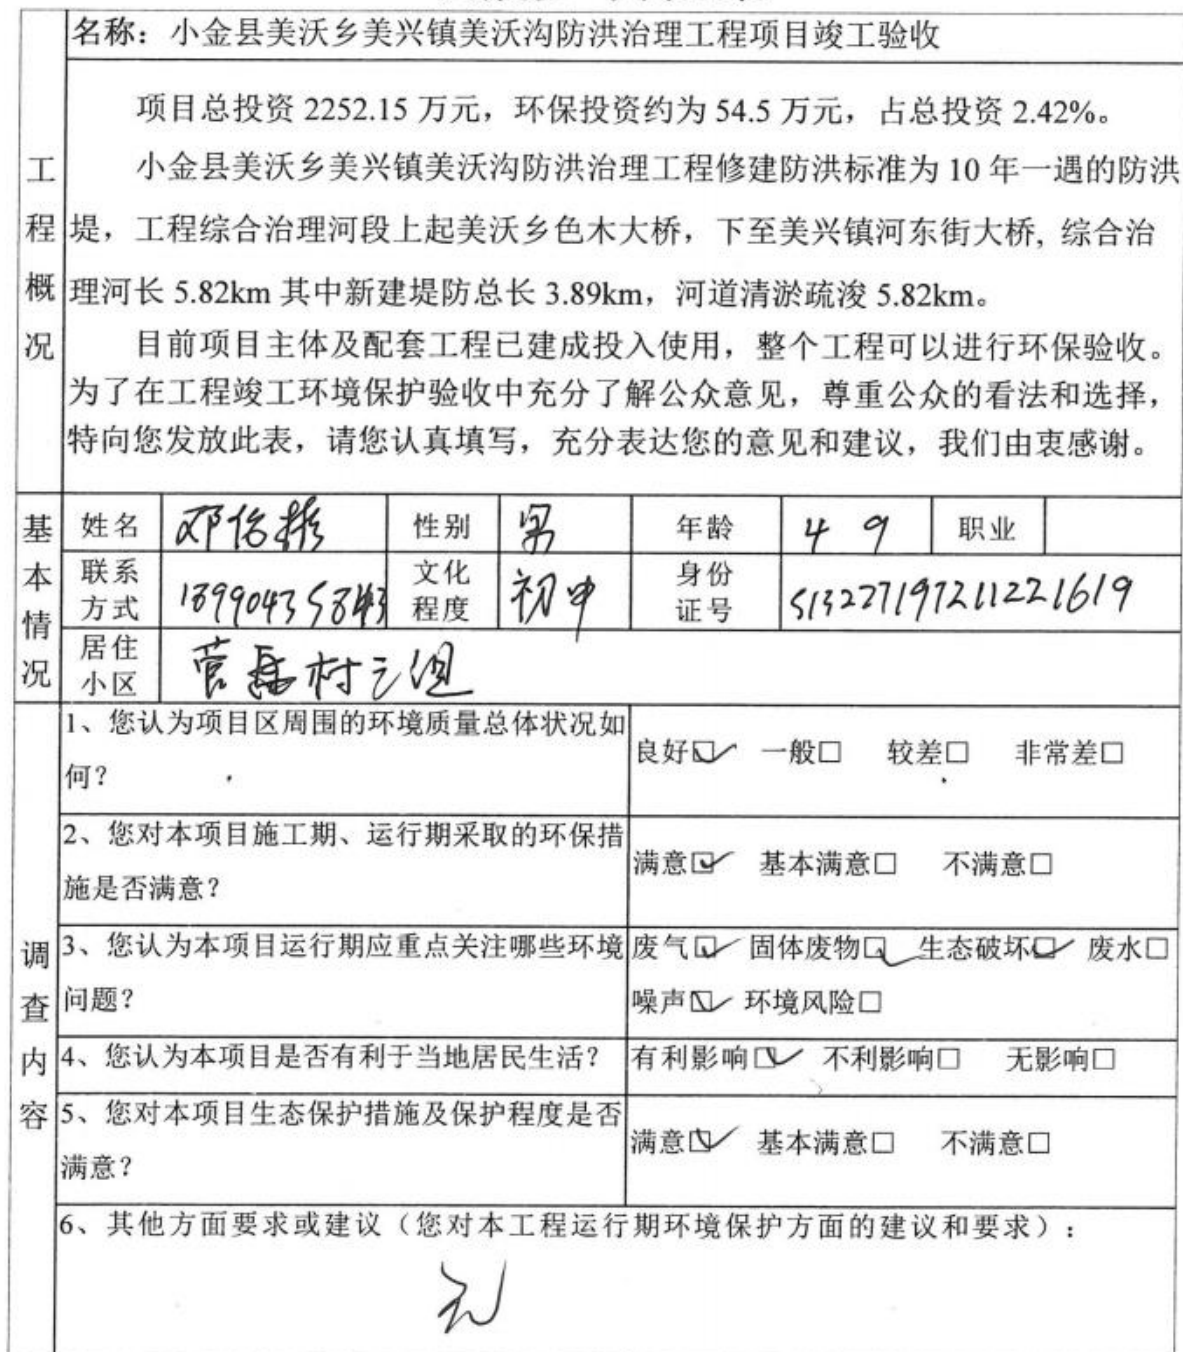 名称：小金县美沃乡美兴镇美沃沟防洪治理工程项目竣工验收
工程概况
项目总投资 2252.15 万元，环保投资约为 54.5 万元，占总投资 2.42%。
小金县美沃乡美兴镇美沃沟防洪治理工程修建防洪标准为 10 年一遇的防洪
堤，工程综合治理河段上起美沃乡色木大桥，下至美兴镇河东街大桥, 综合治
理河长 5.82km 其中新建堤防总长 3.89km，河道清淤疏浚 5.82km。
目前项目主体及配套工程已建成投入使用，整个工程可以进行环保验收。
为了在工程竣工环境保护验收中充分了解公众意见，尊重公众的看法和选择，
特向您发放此表，请您认真填写，充分表达您的意见和建议，我们由衷感谢。
基本情况
姓名 邓 性别 男 年龄 49 职业
联系方式 文化程度 初中 身份证号 513227197211221619
居住小区 村三组
调查内容
1、您认为项目区周围的环境质量总体状况如
何？
良好☑ 一般□ 较差□ 非常差□
2、您对本项目施工期、运行期采取的环保措
施是否满意？
满意☑ 基本满意□ 不满意□
3、您认为本项目运行期应重点关注哪些环境
问题？
废气☑ 固体废物☑ 生态破坏☑ 废水□
噪声☑ 环境风险□
4、您认为本项目是否有利于当地居民生活？ 有利影响☑ 不利影响□ 无影响□
5、您对本项目生态保护措施及保护程度是否
满意？
满意☑ 基本满意□ 不满意□
6、其他方面要求或建议（您对本工程运行期环境保护方面的建议和要求）：
无